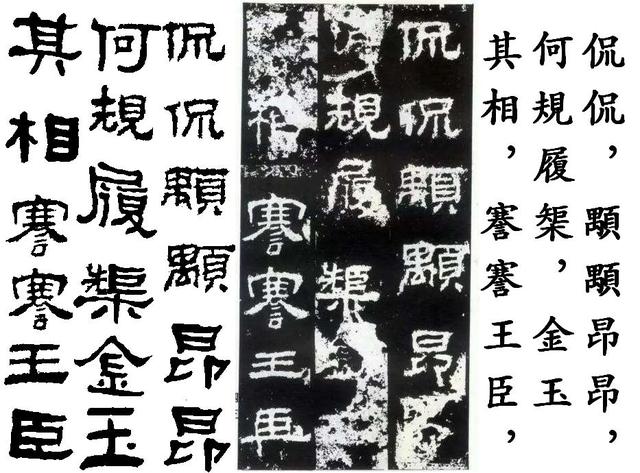 侃侃，顒顒昂昂，
何規履榘，金玉
其相，謇謇王臣，
侃侃顒顒昂
規履榘
相謇謇王臣
侃侃顒顒昂昂
何規履榘金玉
其相謇謇王臣